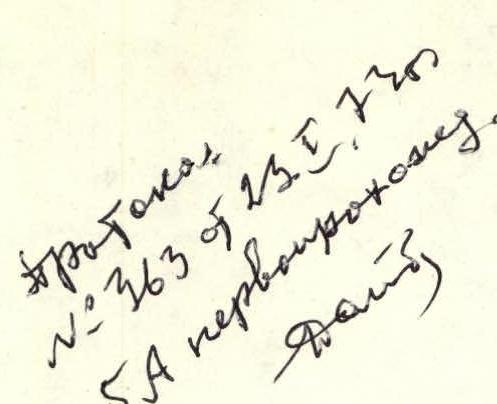 протокол
№ 363 от 23 I. 73г
5А первопроход.